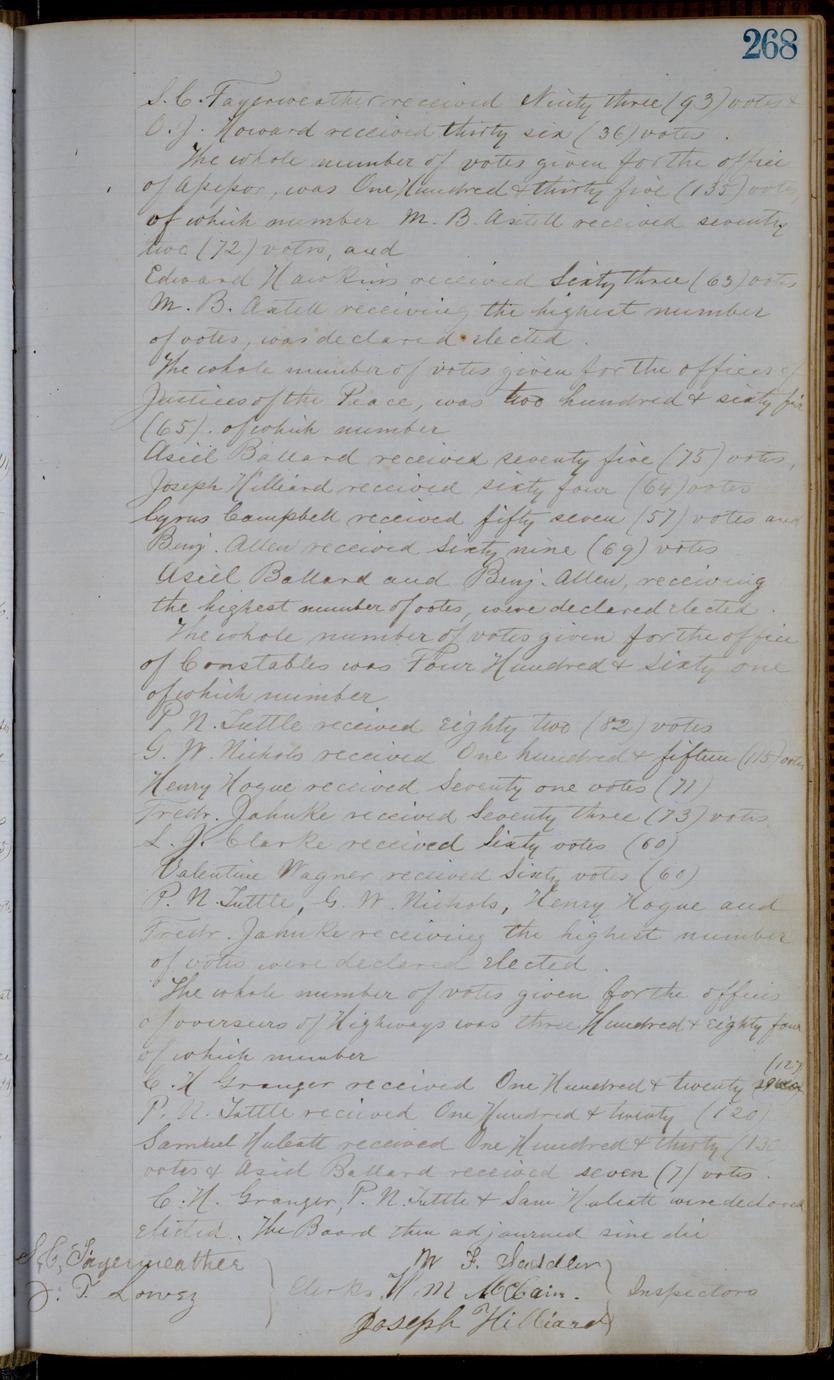 268
S. C. Fayerweather received Ninety three (93) votes &
O. J. Howard received thirty six (36) votes.
The whole number of votes given for the office
of Assessor, was One Hundred & thirty five (135) votes,
of which number M. B. Axtell received seventy
two (72) votes, and
Edward Hawkins received Sixty three (63) votes
M. B. Axtell receiving the highest number
of votes, was declared elected.
The whole number of votes given for the offices of
Justices of the Peace, was two hundred & sixty five
(65). of which number
Asiel Ballard received seventy five (75) votes,
Joseph Hilliard received sixty four (64) votes
Cyrus Campbell received fifty seven (57) votes and
Benj. Allen received Sixty nine (69) votes
Asiel Ballard and Benj. Allen, receiving
the highest number of votes, were declared elected.
The whole number of votes given for the office
of Constables was Four Hundred & Sixty one
of which number
P. N. Tuttle received Eighty two (82) votes
G. W. Nichols received One hundred & fifteen (115) votes
Henry Hogue received Seventy one votes (71)
Fredr. Jahnke received Seventy three (73) votes
L. J. Clarke received Sixty votes (60)
Valentine Wagner received Sixty votes (60)
P. N. Tuttle, G. W. Nichols, Henry Hogue and
Fredr. Jahnke receiving the highest number
of votes were declared Elected.
The whole number of votes given for the offices
of overseers of Highways was three Hundred & Eighty four
of which number
(127
C. H. Granger received One Hundred & twenty seven
P. N. Tuttle received One Hundred & twenty (120)
Samuel Hulcatt received One Hundred & thirty (130
votes & Asiel Ballard received seven (7) votes.
C. H. Granger, P. N. Tuttle & Sam Hulcatt were declared
elected. The Board then adjourned sine die
S. C. Fayerweather
J. T. Lowez
Clerks
W. F. Saidler
W M McCain.
Joseph Hilliard
Inspectors